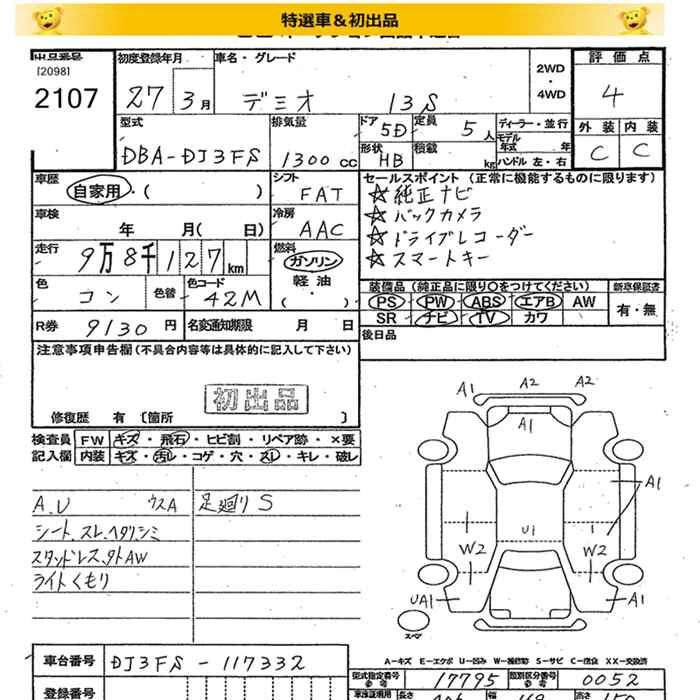 特選車＆初出品
出品番号
[2098]
2107
初度登録年月
27 3月
車名・グレード
デミオ 13S
2WD
・
4WD
評価点
4
外装 内装
C C
型式
DBA-DJ3FS
排気量
1300 cc
ドア 5D
定員 5人
形状 HB
積載 kg
ディーラー・並行
モデル年式 年
ハンドル 左・右
車歴
自家用・( )
シフト
FAT
車検
年 月( 日)
冷房
AAC
走行
9万8千127km
燃料
ガソリン
軽油
( ・ )
色
コン
色替
色コード
42M
R券 9130円
名変通知期限 月 日
セールスポイント (正常に機能するものに限ります)
☆純正ナビ
☆バックカメラ
☆ドライブレコーダー
☆スマートキー
装備品 (純正品に限り○をつけてください)
新車保証書
PS PW ABS エアB AW
SR ナビ TV カワ
有・無
後日品
注意事項申告欄 (不具合内容等は具体的に記入して下さい)
初出品
修復歴 有 〔箇所 〕
検査員記入欄
FW キズ・飛石・ヒビ割・リペア跡・×要
内装 キズ・汚レ・コゲ・穴・スレ・キレ・破レ
A.U ウスA
足廻りS
シート.スレ.ヘタリシミ
スタッドレス.外AW
ライトくもり
A1 A2 A2
A1
A1
U1
W2 W2
UA1 A1
スペア
A-キズ E-エクボ U-凹み W-補修跡 S-サビ C-腐食 XX-交換済
車台番号 DJ3FS-117332
型式指定番号 17795
類別区分番号 0052
参考
登録番号
車検証明用
長さ
幅
高さ